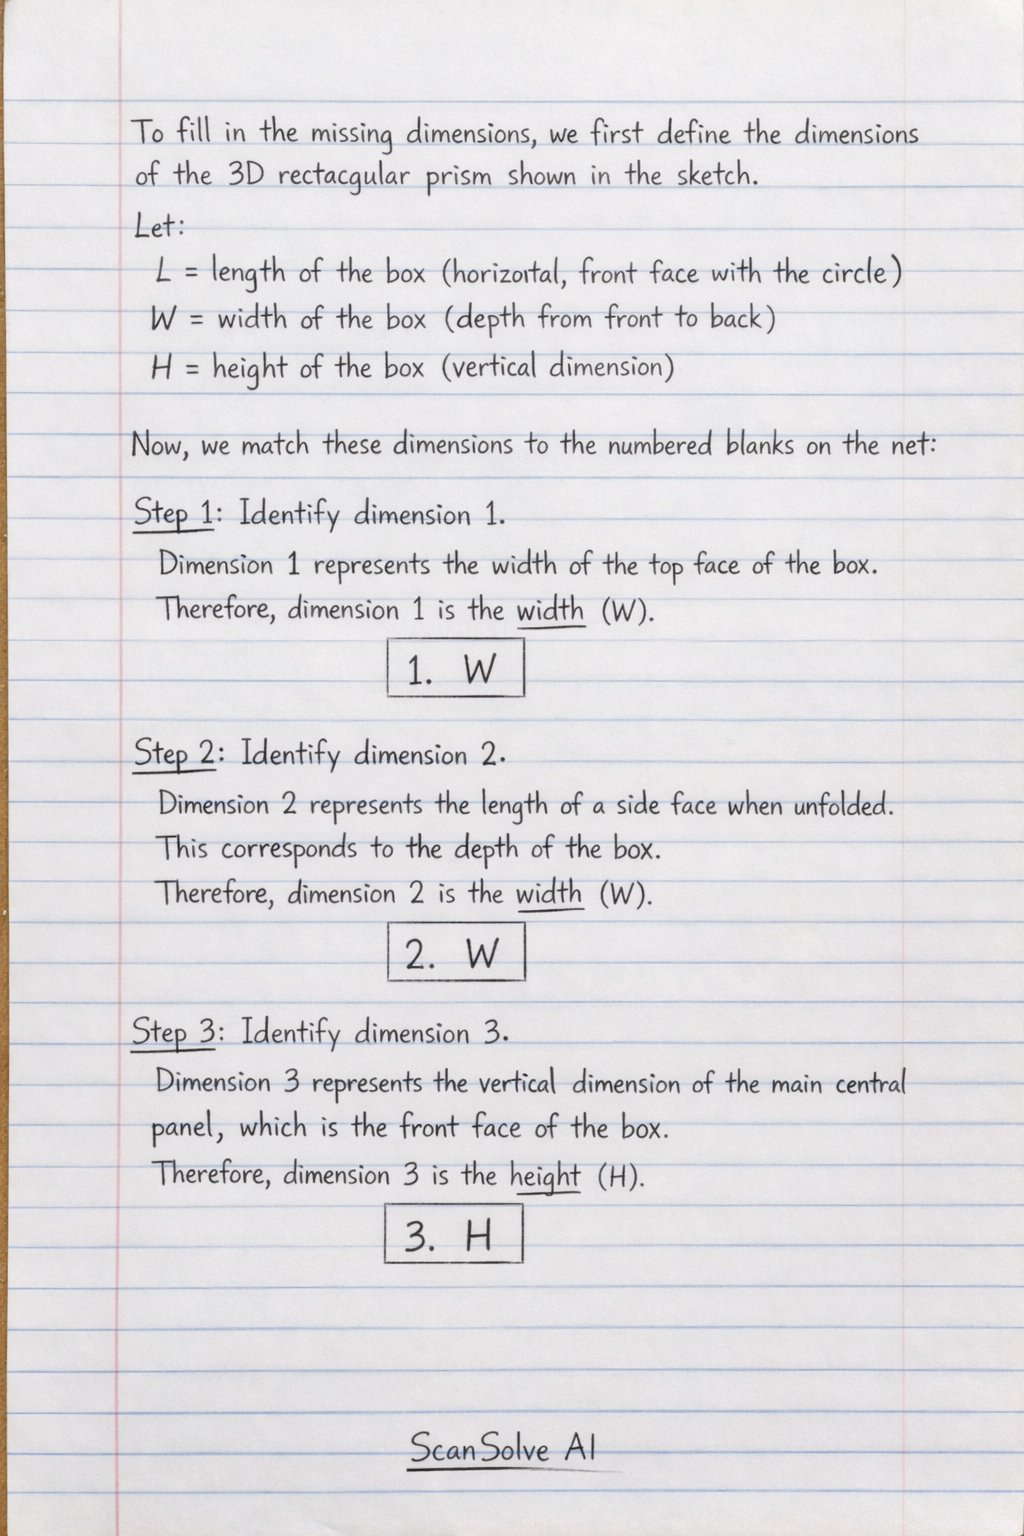 To fill in the missing dimensions, we first define the dimensions
of the 3D rectacgular prism shown in the sketch.
Let:
L = length of the box (horizoıtal, front face with the circle)
W = width of the box (depth from front to back)
H = height of the box (vertical dimension)
Now, we match these dimensions to the numbered blanks on the net:
Step 1: Identify dimension 1.
Dimension 1 represents the width of the top face of the box.
Therefore, dimension 1 is the width (W).
1. W
Step 2: Identify dimension 2.
Dimension 2 represents the length of a side face when unfolded.
This corresponds to the depth of the box.
Therefore, dimension 2 is the width (W).
2. W
Step 3: Identify dimension 3.
Dimension 3 represents the vertical dimension of the main central
panel, which is the front face of the box.
Therefore, dimension 3 is the height (H).
3. H
ScanSolve AI